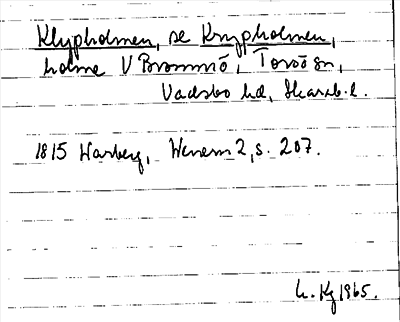 Klypholmen, se Krypholmen,
holme V Brommö, Torsö sn,
Vadsbo hd, Skarab. l.
1815 Warberg, Wenern 2, s. 207.
Kg 1965.